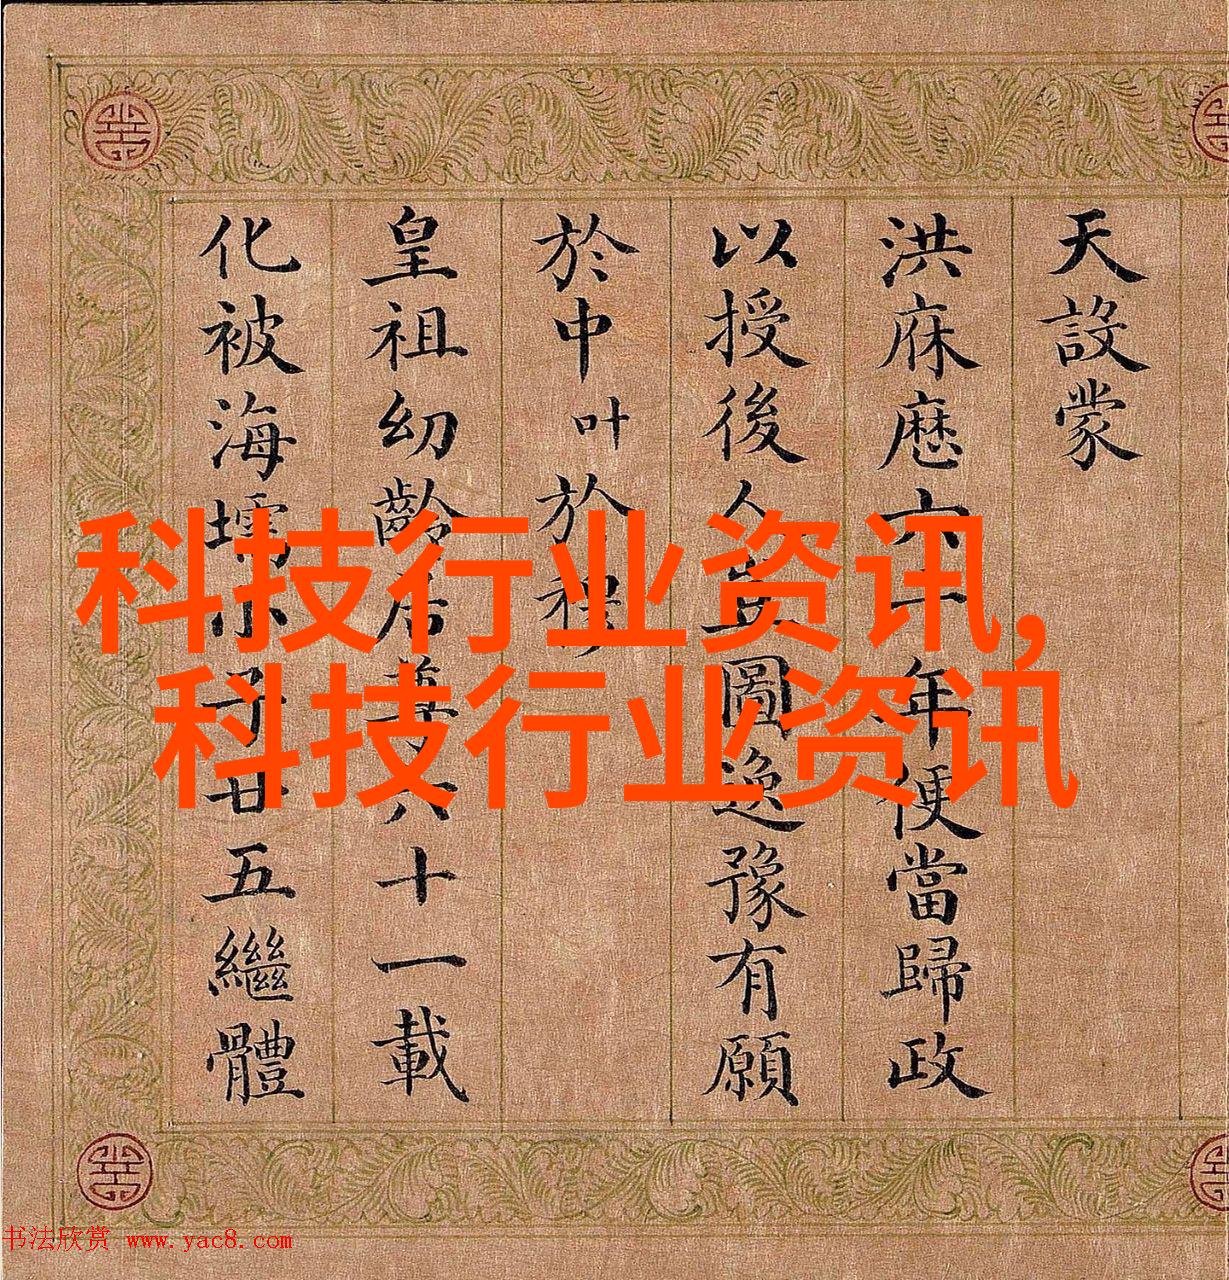 天設蒙
洪庥歷六十年便當歸政
以授後人豈圖逸豫有願
於中叶於穆
皇祖幼齡居尊六十一載
化被海壖小子廿五繼體
科技行业资讯,
科技行业资讯
书法欣赏 www.yac8.com